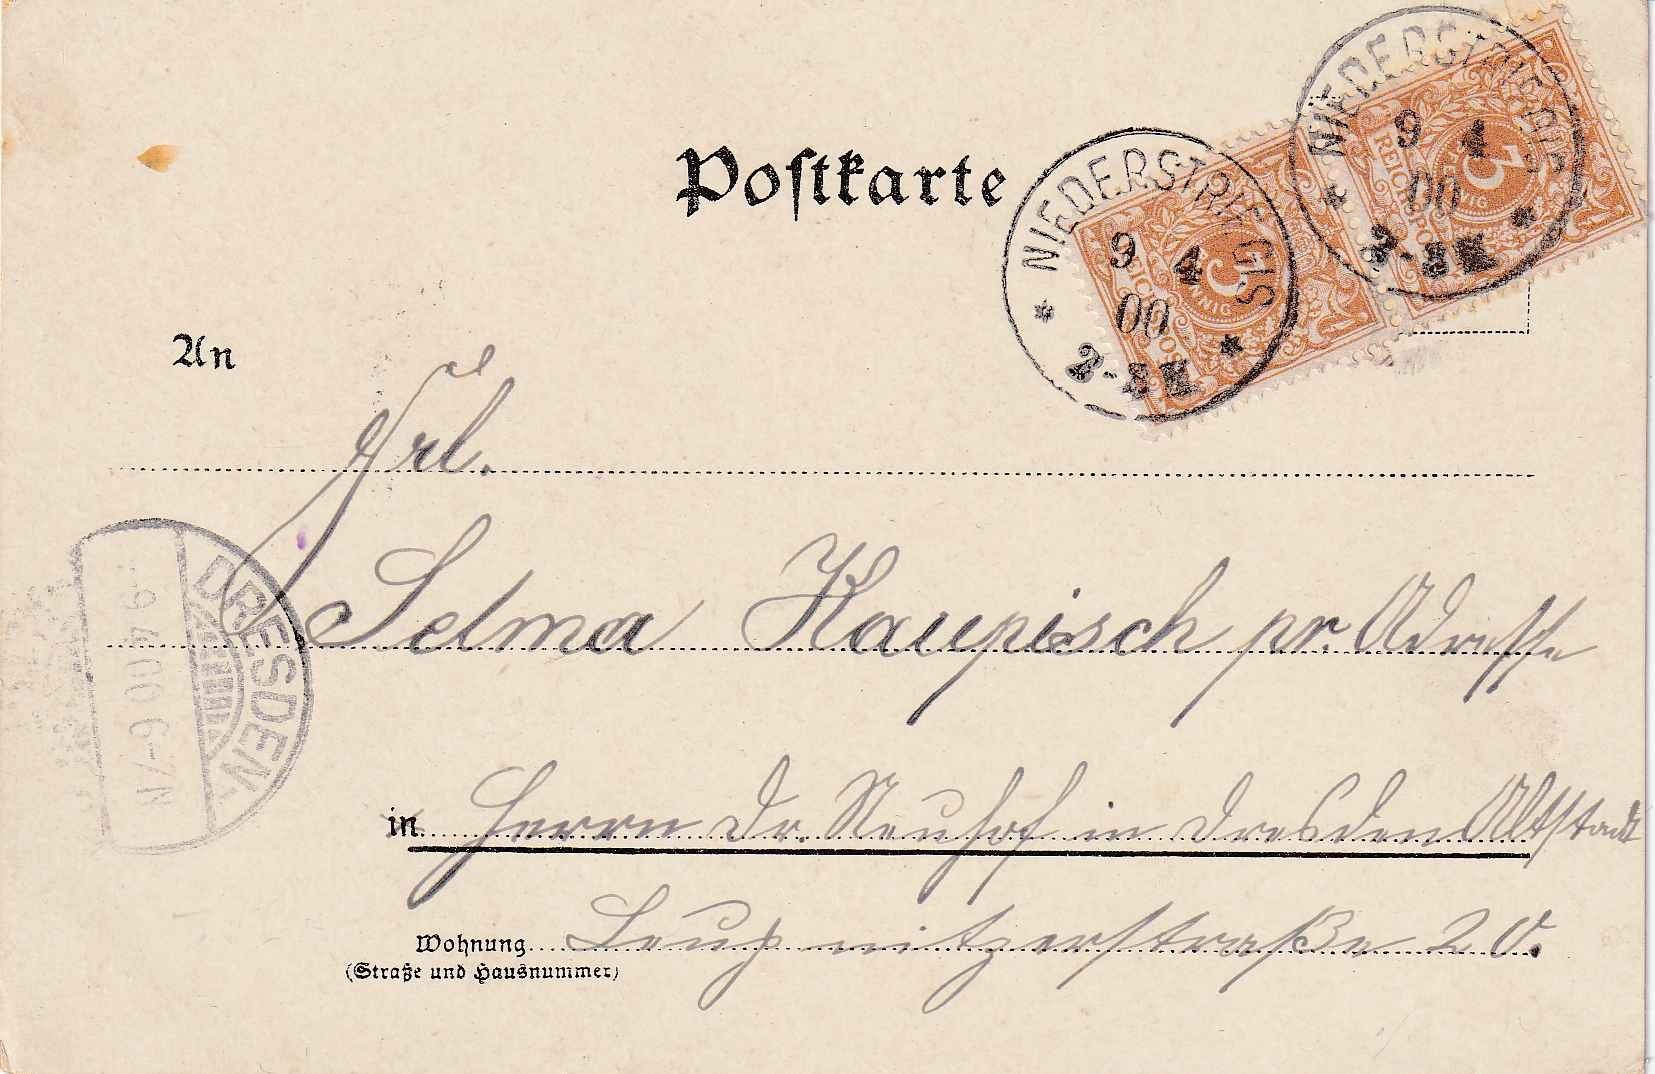 Postkarte
NIEDERSTRIEGIS
9 4
00
2-3N
NIEDERSTRIEGIS
9 4
00
2-3N
3
PFENNIG
REICHSPOST
3
PFENNIG
REICHSPOST
An
Frl.
Selma Kaupisch pr. Adresse
DRESDEN.
-9.4.00.6-7N
in Herrn Dr. Neuhof in Dresden Altstadt
Wohnung
(Straße und Hausnummer)
Leubnitzerstraße 20.